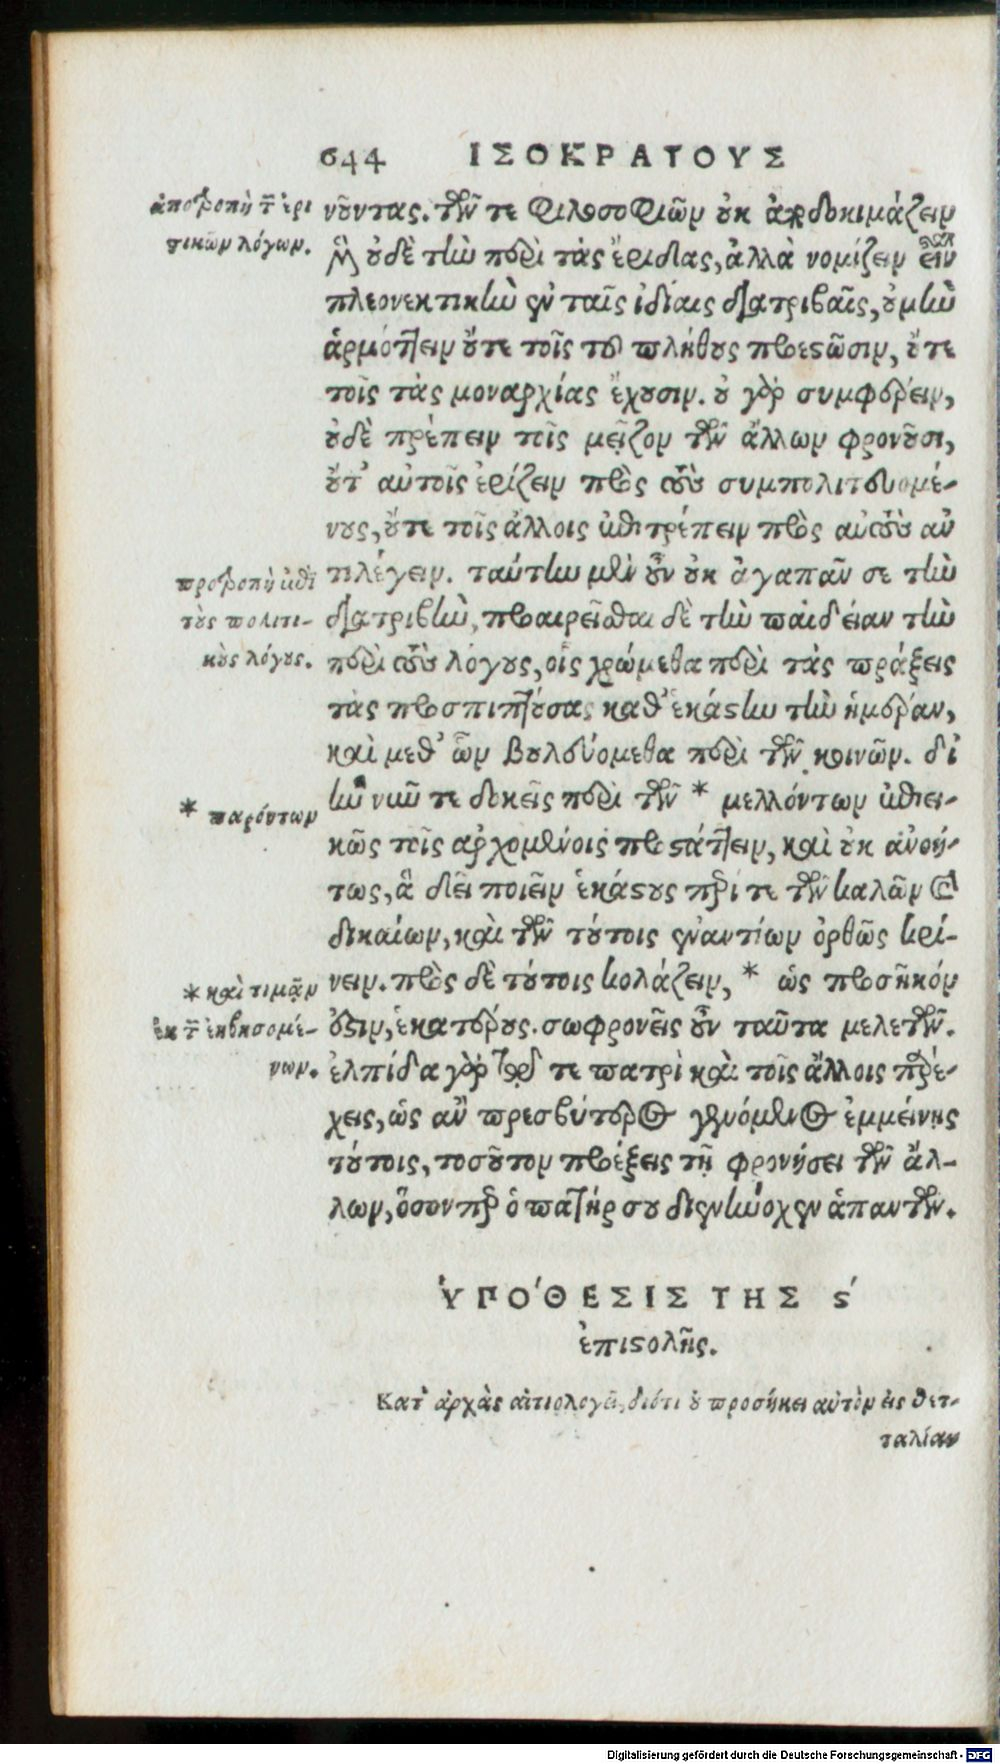 644 ΙΣΟΚΡΑΤΟΥΣ
ἀποτροπὴ τῶν ἐρι
στικῶν λόγων.
νοῦντας. τῶν τε φιλοσοφιῶν οὐκ ἀποδοκιμάζειν
μὲν οὐδὲ τὴν περὶ τὰς ἔριδας, ἀλλὰ νομίζειν εἶναι
πλεονεκτικὴν ἐν ταῖς ἰδίαις διατριβαῖς, οὐ μὴν
ἁρμόττειν οὔτε τοῖς τοῦ πλήθους προεστῶσιν, οὔτε
τοῖς τὰς μοναρχίας ἔχουσιν. οὐ γὰρ συμφέρειν,
οὐδὲ πρέπειν τοῖς μεῖζον τῶν ἄλλων φρονοῦσι,
οὔτ' αὐτοῖς ἐρίζειν πρὸς τοὺς συμπολιτευομέ-
νους, οὔτε τοῖς ἄλλοις ἐπιτρέπειν πρὸς αὐτοὺς ἀν
τιλέγειν. ταύτην μὲν οὖν οὐκ ἀγαπᾶν σε τὴν
προτροπὴ ἐπὶ
τοὺς πολιτι-
κοὺς λόγους.
διατριβὴν, προαιρεῖσθαι δὲ τὴν παιδείαν τὴν
περὶ τοὺς λόγους, οἷς χρώμεθα περὶ τὰς πράξεις
τὰς προσπιπτούσας καθ' ἑκάστην τὴν ἡμέραν,
καὶ μεθ' ὧν βουλευόμεθα περὶ τῶν κοινῶν. δι'
ἣν νῦν τε δοκεῖς περὶ τῶν * μελλόντων ἐπιει-
* παρόντων
κῶς τοῖς ἀρχομένοις προστάττειν, καὶ οὐκ ἀνοή-
τως, ἃ δεῖ ποιεῖν ἑκάστους περί τε τῶν καλῶν καὶ
δικαίων, καὶ τῶν τούτοις ἐναντίων ὀρθῶς κρί-
νειν. πρὸς δὲ τούτοις κολάζειν, * ὡς προσῆκόν
* καὶ τιμᾶν
ἐκ τῶν ἐκβησομέ-
νων.
ὅξιν, ἑκατέρους. σωφρονεῖς οὖν ταῦτα μελετῶν.
ἐλπίδα γὰρ τῷ τε πατρὶ καὶ τοῖς ἄλλοις παρέ-
χεις, ὡς ἂν πρεσβύτερος γενόμενος ἐμμείνῃς
τούτοις, τοσοῦτον προέξεις τῇ φρονήσει τῶν ἄλ-
λων, ὅσον περ ὁ πατήρ σου διενήνοχεν ἁπάντων.
ὙΠΟ'ΘΕΣΙΣ ΤΗΣ ϛ'
ἐπιστολῆς.
Κατ' ἀρχὰς αἰτιολογεῖ, διότι οὐ προσήκει αὐτὸν εἰς Θετ-
ταλίαν
Digitalisierung gefördert durch die Deutsche Forschungsgemeinschaft - DFG